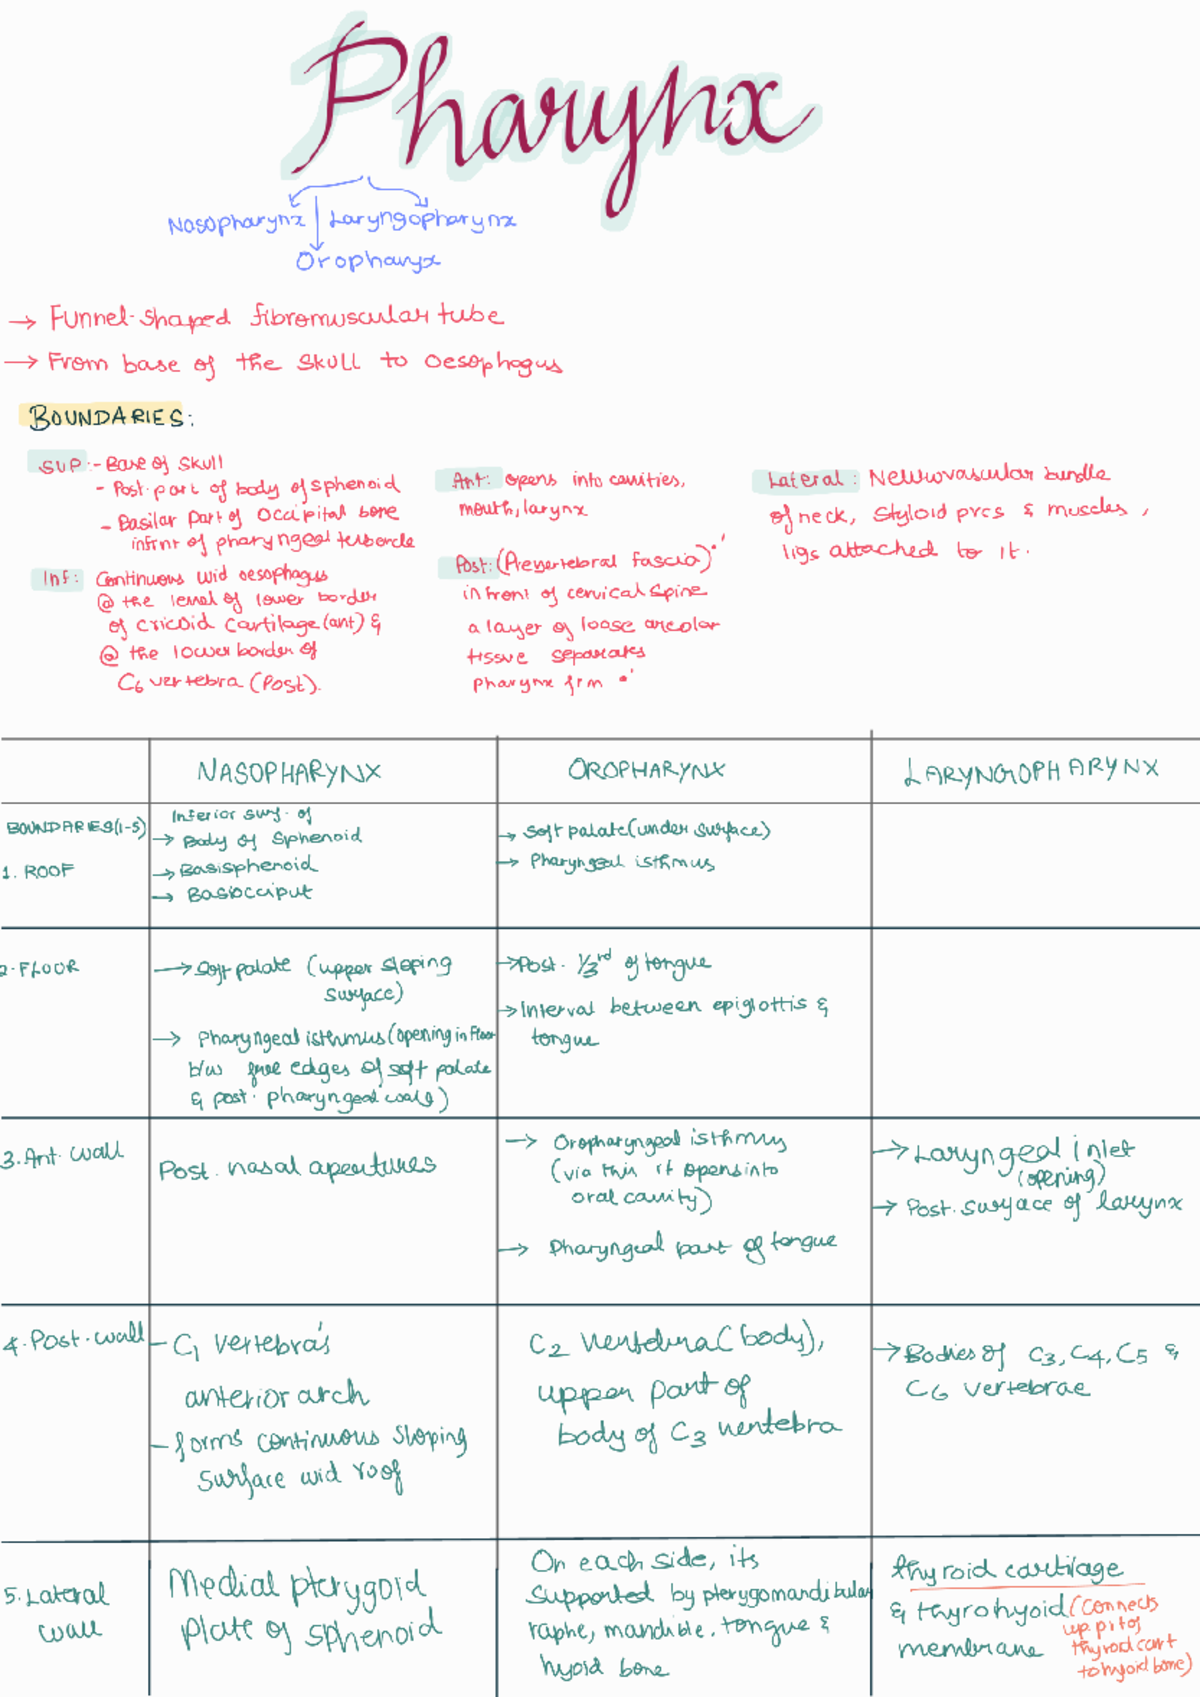 Pharynx
Nasopharynx
Laryngopharynx
Orophanyx
→ Funnel-shaped fibromuscular tube
→ From base of the skull to oesophagus
BOUNDARIES:
SUP:- Base of skull
- Post. part of body of sphenoid
- Basilar part of occipital bone
infrnt of pharyngeal tubercle
Inf: Continuous wid oesophagus
@ the level of lower border
of cricoid cartilage (ant) &
@ the lower border of
C6 vertebra (Post).
Ant: opens into cavities,
mouth, larynx
Post: (Prevertebral fascia)
in front of cervical spine
a layer of loose areolar
tissue separates
pharynx frm
Lateral: Neurovascular bundle
of neck, styloid prcs & muscles,
ligs attached to it.
NASOPHARYNX
OROPHARYNX
LARYNGOPHARYNX
BOUNDARIES(1-5)
1. ROOF
Inferior surf. of
→ Body of sphenoid
→ Basisphenoid
→ Basiocciput
→ Soft palate (under surface)
→ Pharyngeal isthmus
2. FLOOR
→ Soft palate (upper sloping
surface)
→ Pharyngeal isthmus (opening in floor
b/w free edges of soft palate
& post. pharyngeal wall)
→ Post. 1/3rd of tongue
→ Interval between epiglottis &
tongue
3. Ant. wall
Post. nasal apertures
→ Oropharyngeal isthmus
(via this it opens into
oral cavity)
→ Pharyngeal part of tongue
→ Laryngeal inlet
(opening)
→ Post. surface of larynx
4. Post. wall
- C1 vertebra's
anterior arch
- forms continuous sloping
surface wid roof
C2 vertebra (body),
upper part of
body of C3 vertebra
→ Bodies of C3, C4, C5 &
C6 vertebrae
5. Lateral
wall
Medial pterygoid
Plate of sphenoid
On each side, its
supported by pterygomandibular
raphe, mandible, tongue &
hyoid bone
thyroid cartilage
& thyrohyoid
membrane
(connects
up. pt of
thyroid cart
to hyoid bone)